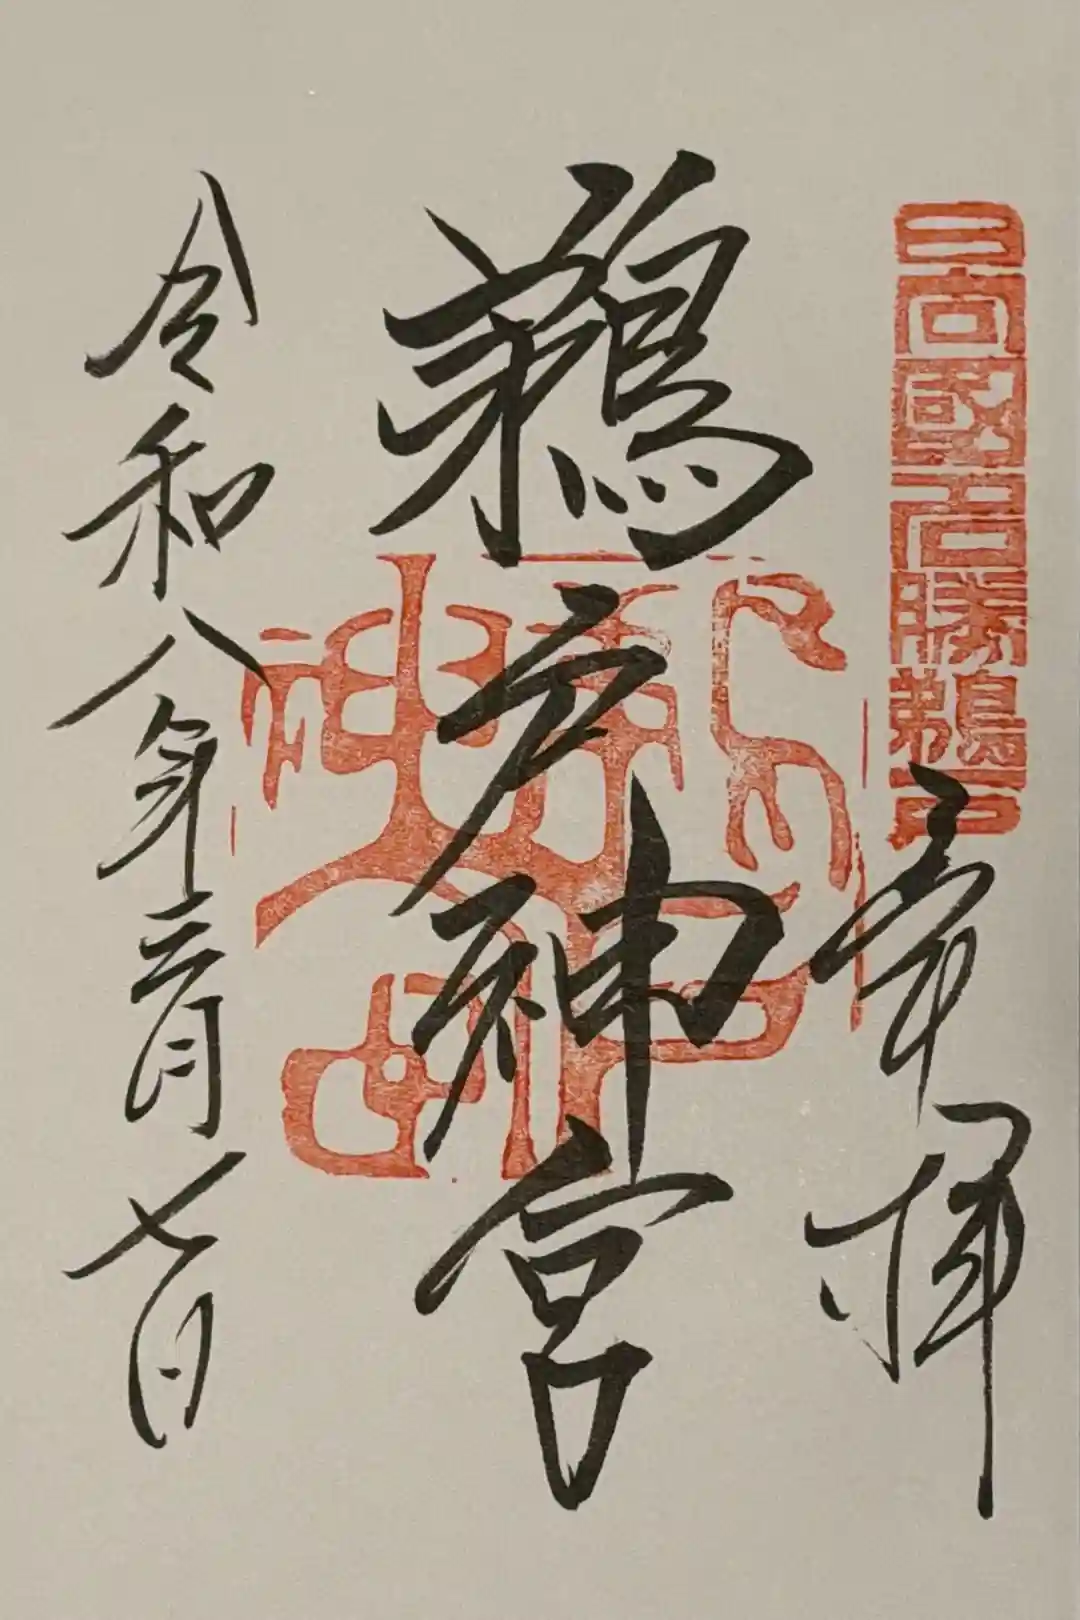 日向國名勝鵜戸
奉拝
鵜戸神宮
令和八年三月七日